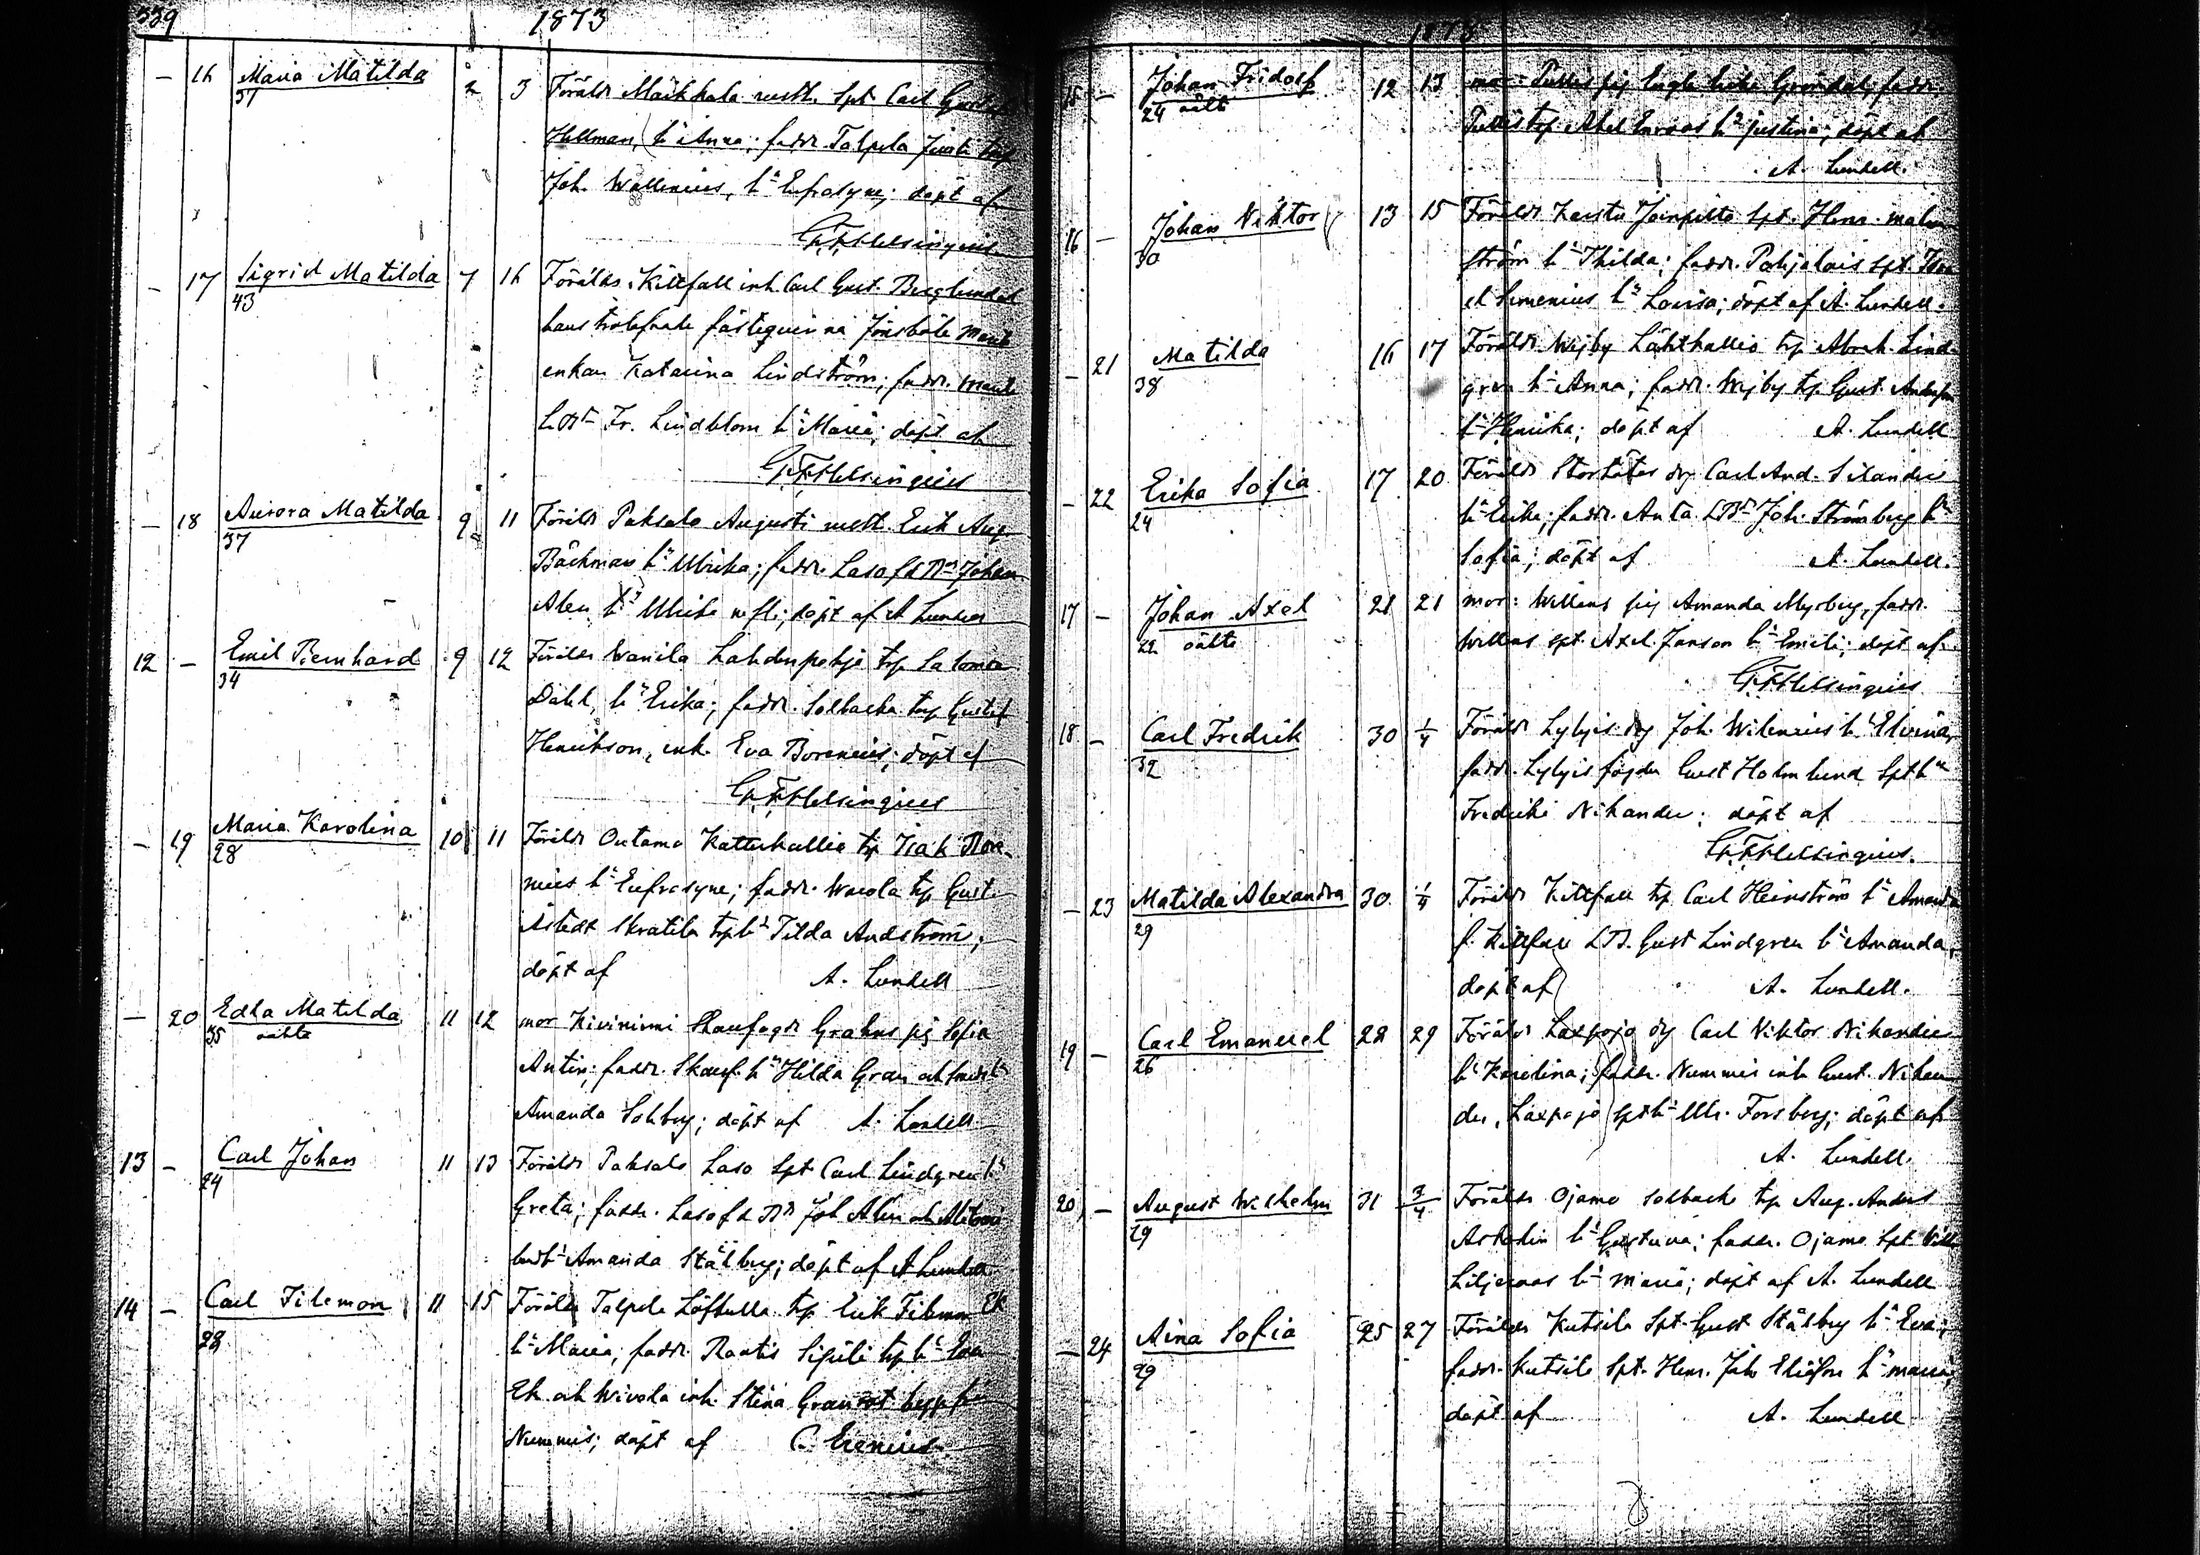 339 1873
— 16 Maria Matilda 2 3 Föräldr Maikkala rustl. Spt Carl
37 Hellman, h:u Anna; faddr. Talpela
Joh. Wallenius, h:u Eufrosyne; döpt af
G.F. Helsingius
— 17 Sigrid Matilda 7 16 Föräldr. Kittfall inh. Carl Gust. Berglund och
43 hans trolofvade fästeqvinna Jönsböle
enkan Katarina Lindström; faddr.
Fr. Lindblom h:u Maria; döpt af
G.F. Helsingius
— 18 Aurora Matilda 9 11 Föräldr Paksalo Augusti rustl. Erik Aug.
37 Bäckman h:u Ulrika; faddr. Laso Johan
Alen h:u Ulrika; döpt af A Lundell
12 — Emil Bernhard 9 12 Föräldr Wanila Lahdenpohja trp Salomon
34 Dahl, h:u Erika; faddr. Solbacka trp Gustaf
Henrikson, enk. Eva Borenius; döpt af
G.F. Helsingius
— 19 Maria Karolina 10 11 Föräldr Outamo Kattukallio trp Isak
28 nius h:u Eufrosyne; faddr. Warola trp Gust.
Åstedt Skratila trp h:u Tilda Andström;
döpt af A. Lundell
— 20 Edla Matilda 11 12 mor Kiviniemi Skaufogdr Grahns pig Sofia
35 oäkta Antin; faddr. Skauf. h:u Hilda Gran och
Amanda Solberg; döpt af A. Lundell
13 — Carl Johan 11 13 Föräldr Paksalo Laso Spt Carl Lindgren h:u
24 Greta; faddr. Laso Joh Alen och
Amanda Stålberg; döpt af A Lundell
14 — Carl Filemon 11 15 Föräldr Talpela Löfkulla trp Erik Filemon Ek
28 h:u Maria; faddr. Raatis Sipili trp h:u Eva
Ek och Wivola inh. Stina Granrot
Nummis; döpt af C. Erenius
1873
15 — Johan Fridolf 12 13 mor: Puttus pig Grondal; faddr
24 oäkta trp Abel h:u Justina; döpt af
A. Lundell.
16 — Johan Viktor 13 15 Föräldr Karstu Jönpelto Spt. Henr. Malm
30 ström h:u Thilda; faddr. Pohjalais Spt. Isra
el Simenius h:u Lovisa; döpt af A. Lundell.
— 21 Matilda 16 17 Föräldr Wejby Lähtkallio trp Abrah. Lind
38 gren h:u Anna; faddr. Wejby trp Gust.
h:u Henrika; döpt af A. Lundell
— 22 Erika Sofia 17 20 Föräldr Stortötar drg Carl And. Silander
24 h:u Erika; faddr. Anta Joh. Strömberg h:u
Sofia; döpt af A. Lundell.
17 — Johan Axel 21 21 mor: Willans pig Amanda Myrberg, faddr.
22 oäkta Willans spt. Axel Janson h:u Emili; döpt af
G.F. Helsingius
18 — Carl Fredrik 30 1/4 Föräldr Lylyis drg Joh. Wilenius h:u Elvina,
32 faddr. Lylyis fogden Gust Holmlund Spt h:u
Fredrika Nikander; döpt af
G.F. Helsingius.
— 23 Matilda Alexandra 30 1/4 Föräldr Kittfall trp Carl Heinström h:u Amanda
29 f. Kittfall Gust Lindgren h:u Amanda,
döpt af A. Lundell.
19 — Carl Emanuel 28 29 Föräldr Laxpojo drg Carl Viktor Nikander
26 h:u Karolina; faddr. Nummis inh Gust. Nikan
der, Laxpojo spt h:u Ulr. Forsberg; döpt af
A. Lundell.
20 — August Wilhelm 31 3/4 Föräldr Ojamo Solbacka trp Aug. Anders
29 Askolin h:u Gustava; faddr. Ojamo Spt
Liljeroos h:u Maria; döpt af A. Lundell
— 24 Aina Sofia 25 27 Föräldr Kutsila Spt. Gust Stålberg h:u Eva;
29 faddr. Kutsila Spt. Henr. Joh. h:u Maria,
döpt af A. Lundell